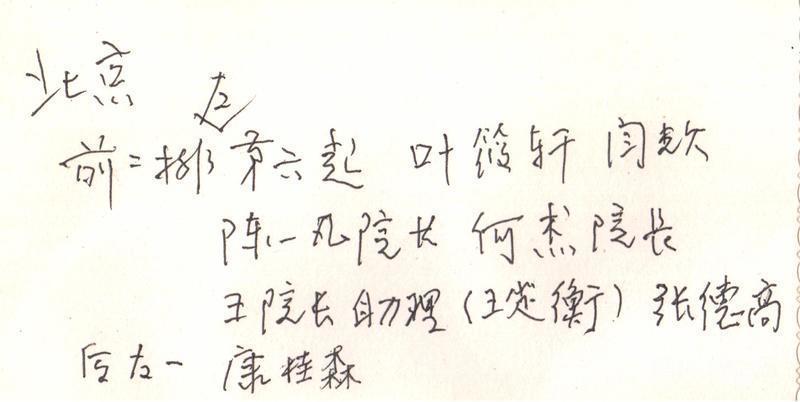 北京 左
前二排第六起 叶筱轩 闫钦
陈一凡院长 何杰院长
王院长助理（王定衡）张德高
后左一 康桂森